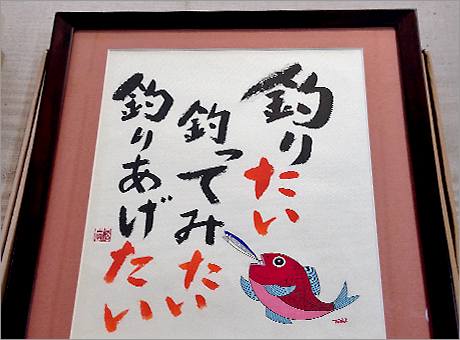 釣りたい
釣ってみたい
釣りあげたい